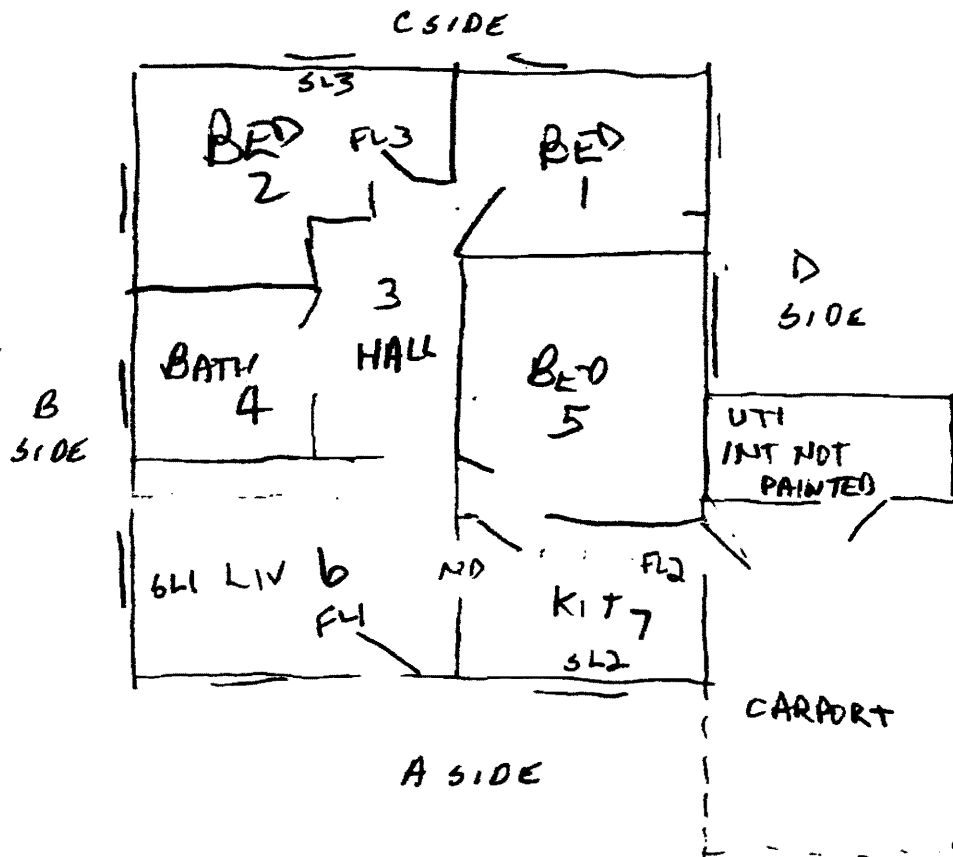 C SIDE
SL3
BED
2
FL3
BED
1
3
HALL
D
SIDE
BATH
4
BED
5
B
SIDE
UTI
INT NOT
PAINTED
SL1 LIV 6
FL1
ND
FL2
KIT 7
SL2
CARPORT
A SIDE